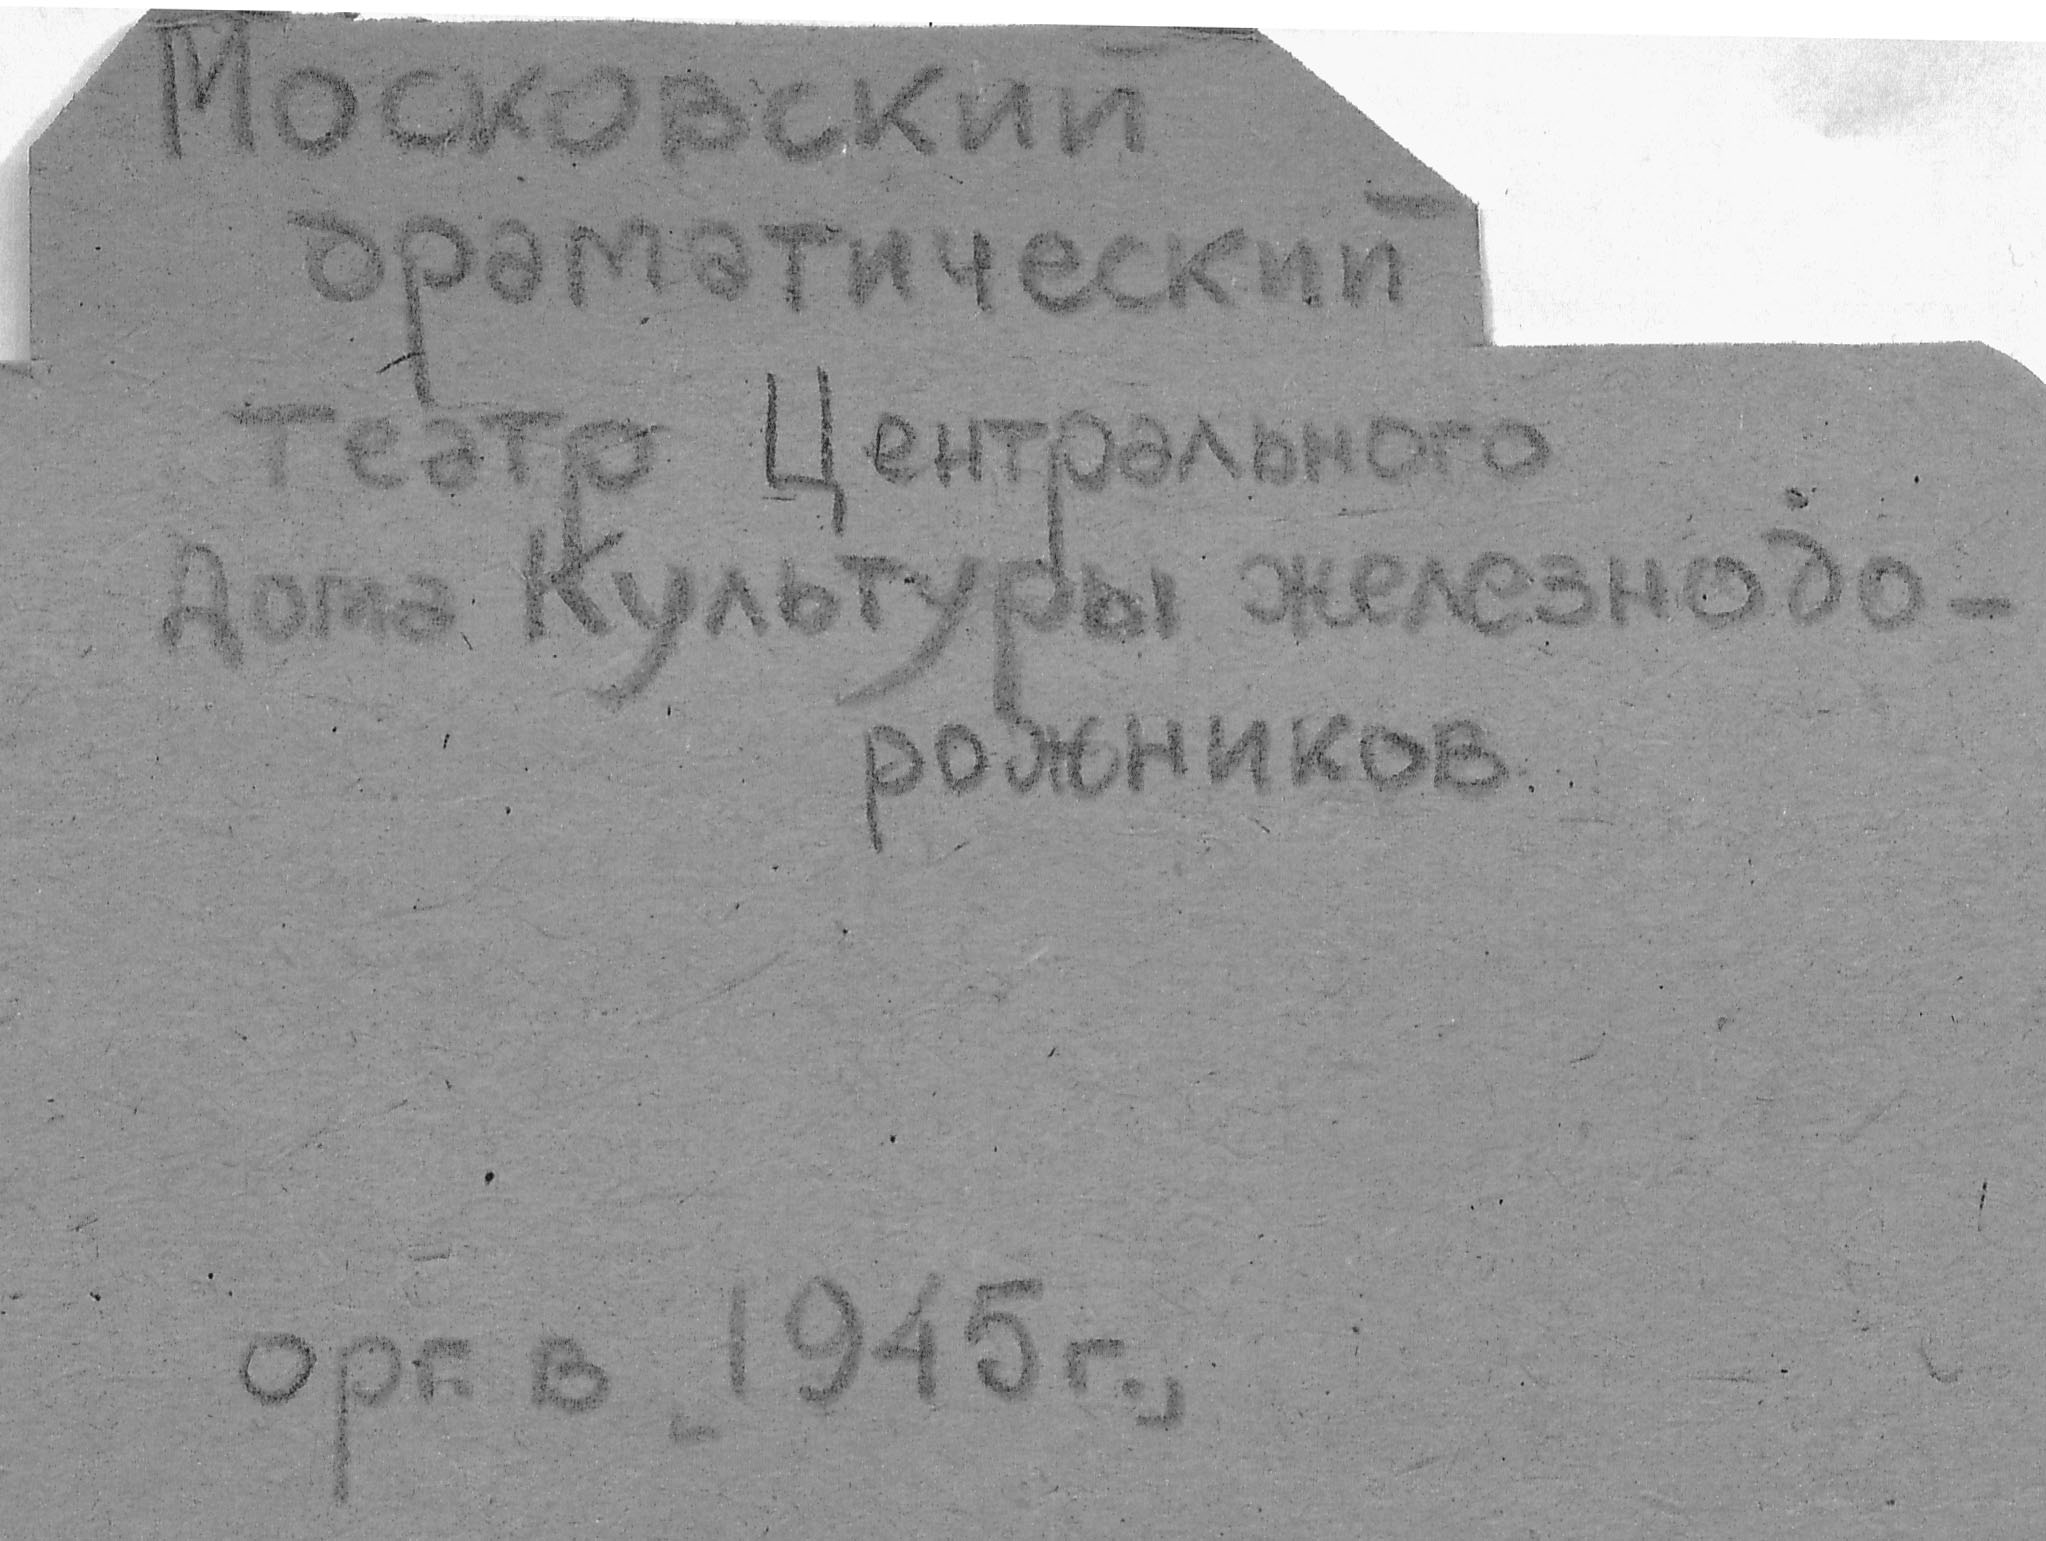 Московский
драматический
театр Центрального
Дома Культуры железнодо-
рожников
орг. в 1945 г.,